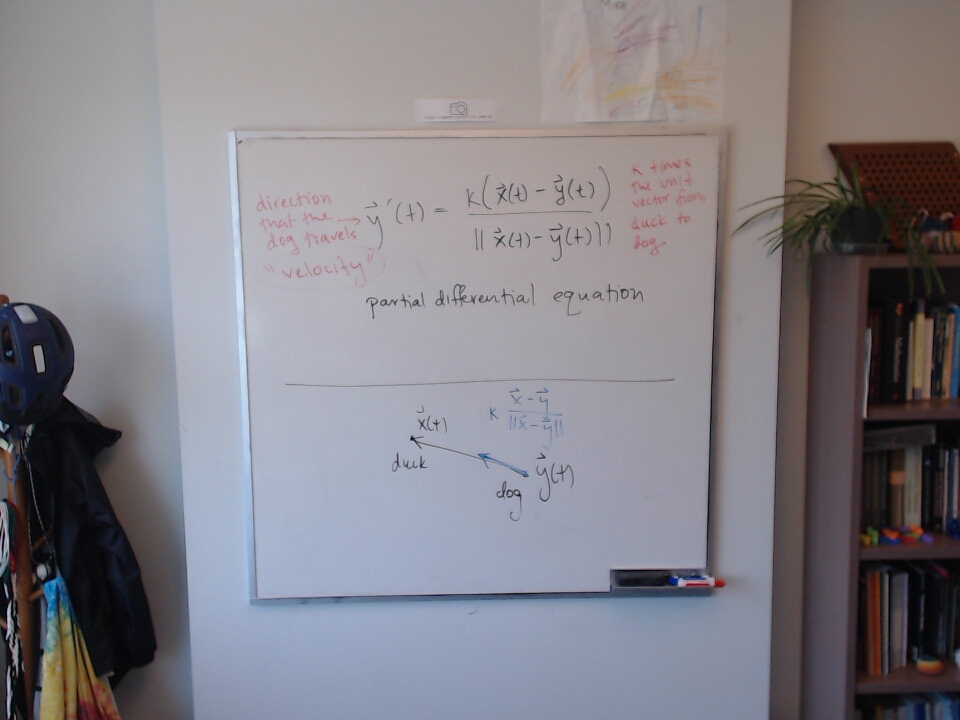 direction
that the
dog travels
"velocity"
→ y⃗'(t) = k(x⃗(t) - y⃗(t)) / ||x⃗(t) - y⃗(t)||
k times
the unit
vector from
duck to
dog
partial differential equation
x⃗(t)
k (x⃗ - y⃗) / ||x⃗ - y⃗||
duck
y⃗(t)
dog